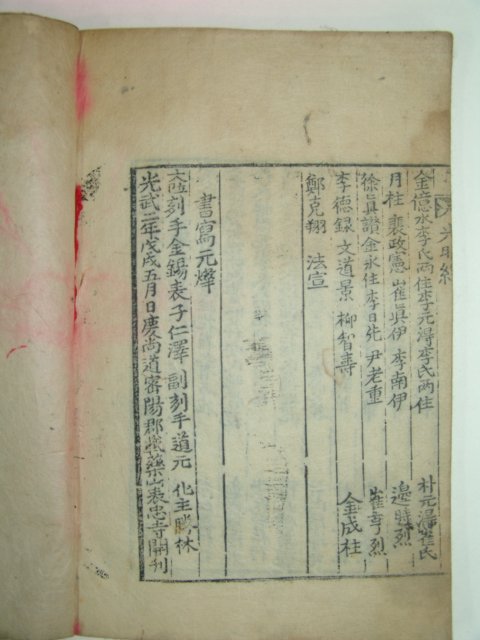 金億水李氏兩住李元淂李氏兩住 朴元淂崔氏
月柱 裵政憲 崔眞伊 李南伊 邊時烈
徐眞讚金永住李日先 尹老重 崔亨烈
李德録 文道景 柳智壽 金成柱
鄭克翔 法宣
書寫元燁
刻手金錫表子仁澤 副刻手道元 化主勝休
光武二年戊戌五月日慶尚道密陽郡載藥山表忠寺開刊